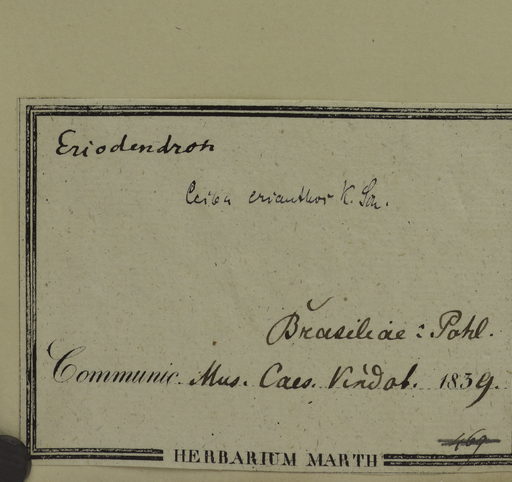 Eriodendron
Ceiba erianthos K. Sch.
Brasiliae: Pohl.
Communic. Mus. Caes. Vindob. 1839.
469
HERBARIUM MARTH